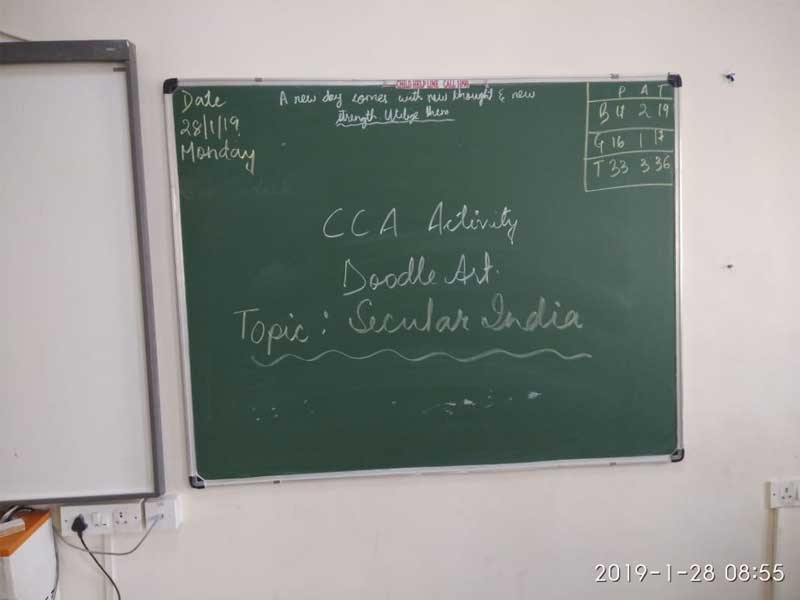 CHILD HELP LINE CALL 1098
Date
28/1/19
Monday
A new day comes with new thought & new
strength. Utilize them
P A T
B 17 2 19
G 16 1 17
T 33 3 36
CCA Activity
Doodle Art.
Topic : Secular India
2019-1-28 08:55